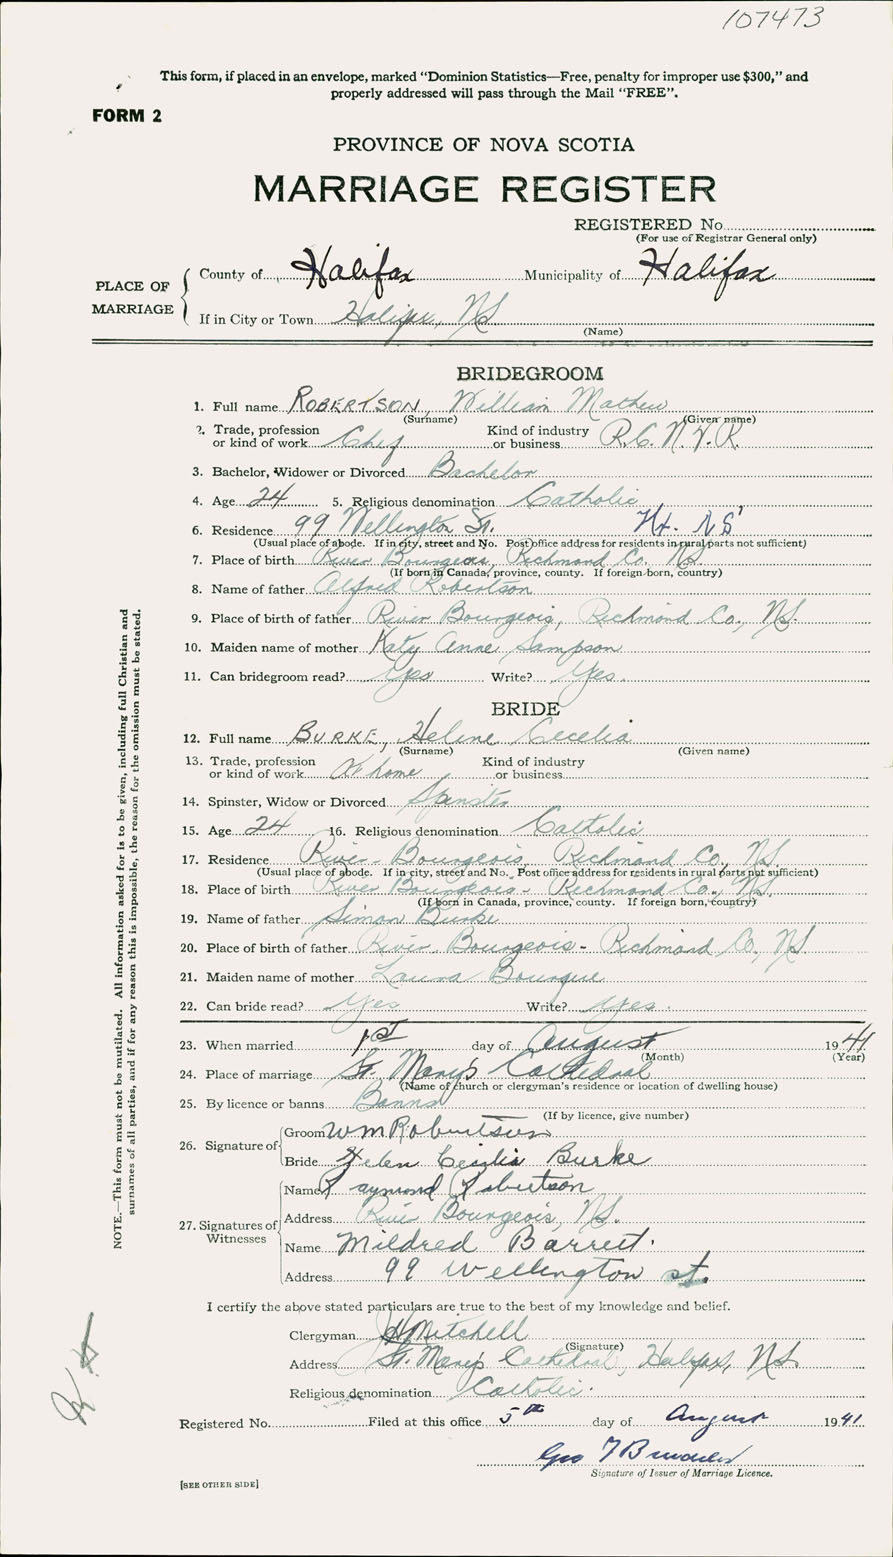 107473
This form, if placed in an envelope, marked “Dominion Statistics—Free, penalty for improper use $300,” and
properly addressed will pass through the Mail “FREE”.
FORM 2
PROVINCE OF NOVA SCOTIA
MARRIAGE REGISTER
REGISTERED No.
(For use of Registrar General only)
PLACE OF MARRIAGE
County of Halifax Municipality of Halifax
If in City or Town Halifax, NS
(Name)
BRIDEGROOM
1. Full name ROBERTSON, William Mathew
(Surname) (Given name)
2. Trade, profession or kind of work Chef Kind of industry or business R.C.N.V.R.
3. Bachelor, Widower or Divorced Bachelor
4. Age 24 5. Religious denomination Catholic
6. Residence 99 Wellington St. Hx. NS
(Usual place of abode. If in city, street and No. Post office address for residents in rural parts not sufficient)
7. Place of birth River Bourgeois, Richmond Co. NS.
(If born in Canada, province, county. If foreign born, country)
8. Name of father Alfred Robertson
9. Place of birth of father River Bourgeois, Richmond Co., NS.
10. Maiden name of mother Katy Anne Sampson
11. Can bridegroom read? Yes Write? Yes.
BRIDE
12. Full name BURKE, Helene Cecelia
(Surname) (Given name)
13. Trade, profession or kind of work At home Kind of industry or business
14. Spinster, Widow or Divorced Spinster
15. Age 24 16. Religious denomination Catholic
17. Residence River-Bourgeois, Richmond Co., NS.
(Usual place of abode. If in city, street and No. Post office address for residents in rural parts not sufficient)
18. Place of birth River Bourgeois- Richmond Co., NS.
(If born in Canada, province, county. If foreign born, country)
19. Name of father Simon Burke
20. Place of birth of father River Bourgeois- Richmond Co., NS.
21. Maiden name of mother Laura Bourque
22. Can bride read? Yes Write? Yes.
23. When married 1st day of August 1941
(Month) (Year)
24. Place of marriage St. Mary's Cathedral
(Name of church or clergyman's residence or location of dwelling house)
25. By licence or banns Banns
(If by licence, give number)
26. Signature of
Groom Wm Robertson
Bride Helen Cecilia Burke
27. Signatures of Witnesses
Name Raymond Robertson
Address River Bourgeois, NS.
Name Mildred Barrett.
Address 99 Wellington st.
I certify the above stated particulars are true to the best of my knowledge and belief.
Clergyman Mitchell
(Signature)
Address St. Mary's Cathedral, Halifax, NS
Religious denomination Catholic.
Registered No. Filed at this office 5th day of August 1941
Geo
Signature of Issuer of Marriage Licence.
[SEE OTHER SIDE]
NOTE.—This form must not be mutilated. All information asked for is to be given, including full Christian and
surnames of all parties, and if for any reason this is impossible, the reason for the omission must be stated.